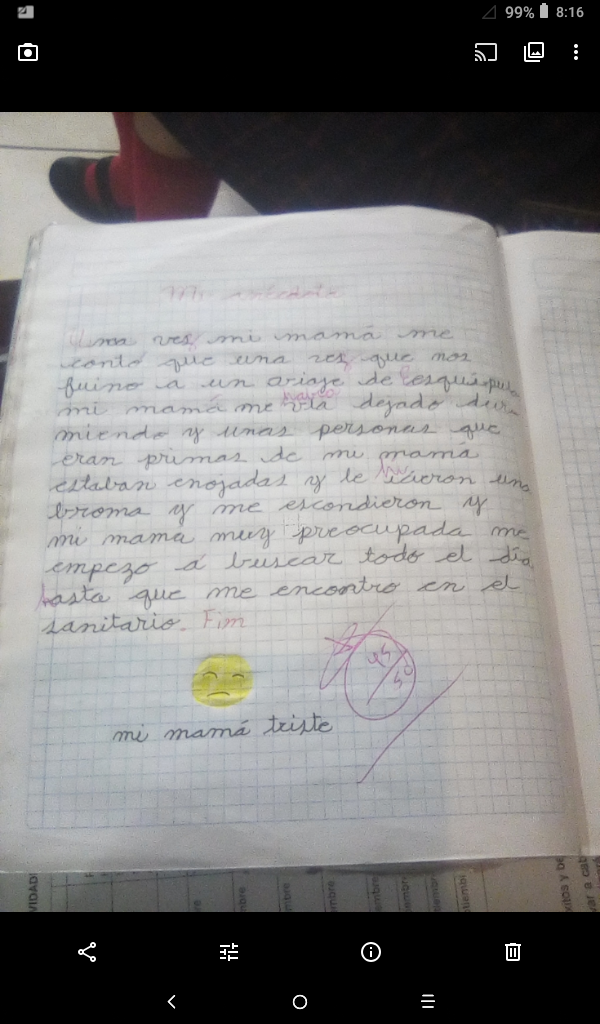 99% 8:16
Mi anécdota
Una vez mi mamá me
contó que una vez que nos
fuino a un ariaje de esquipula
mi mamá me había dejado dur-
miendo y unas personas que
eran primas de mi mamá
estaban enojadas y le hicieron una
broma y me escondieron y
mi mama muy preocupada me
empezo a buscar todo el día
hasta que me encontro en el
sanitario. Fim
mi mamá triste
VIDAD